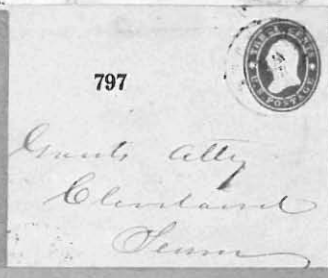 THREE CENTS
U.S. POSTAGE
797
Grants Atty
Cleveland
Tenn